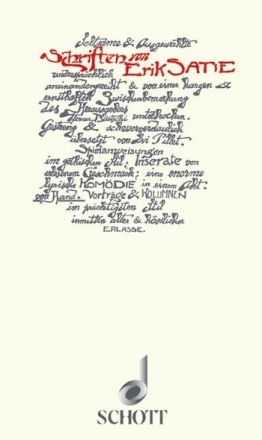 Seltsame & Ausgewählte
Schriften von
Erik SATIE
widersprüchlich
aneinandergereiht & von einer kargen &
ernsthaften Zwischenbemerkung
des Herausgebers
unterbrochen.
Gestreng & schwerverdaulich
übersetzt von
Spielanweisungen
im gothischen Stil. Inserate von
erlesenem Geschmack; eine enorme
lyrische KOMÖDIE in einem Akt.
von Hand. Vorträge & KOLUMNEN
im prächtigsten Stil
inmitten alter & hässlicher
ERLASSE.
SCHOTT